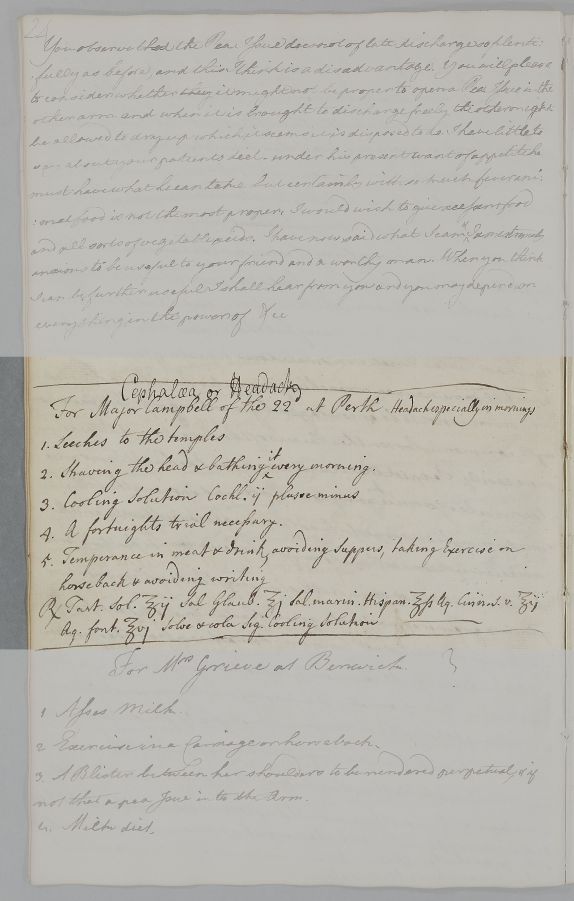 You observe that the Pea Issue does not of late discharge so plenti:
:fully as before, and this I think is a disadvantage. You will please
to consider whether it might not be proper to open a Pea Issue in the
other arm and when it is brought to discharge freely the other might
be allowed to dry up which it seems it is disposed to do. I have little to
say about your patients diet. under his present want of appetite he
must have what he can take. but certainly with so much fever ani:
:mal food is not the most proper. I would wish to give
and all sorts of vegetable acids. I have now said what I can & I am
anxious to be useful to your friend and a worthy man. When you think
I can be further useful I shall hear from you and you may depend on
every thing in the power of &c
Cephalæa or Headach
For Major Campbell of the 22d at Perth Headach especially in mornings
1. Leeches to the temples
2. Shaving the head & bathing it every morning.
3. Cooling Solution Cochl. ij plus se minus
4. A fortnights trial necessary.
5. Temperance in meat & drink, avoiding Suppers, taking Exercise on
horseback & avoiding writing
℞ Tart. Sol. ʒij Sal Glaub. ʒj Sal. marin. Hispan. ʒſs Aq. Cinn. s. v. ʒij
Aq. font. ʒvj Solve & cola Sig. Cooling Solution
For Mrs Grieve at Berwick.
1 Asses Milk.
2 Exercise in a Carriage or horseback.
3. A Blister between her shoulders to be rendered perpetual, & if
not that a pea Issue in to the Arm.
4. Milk diet.